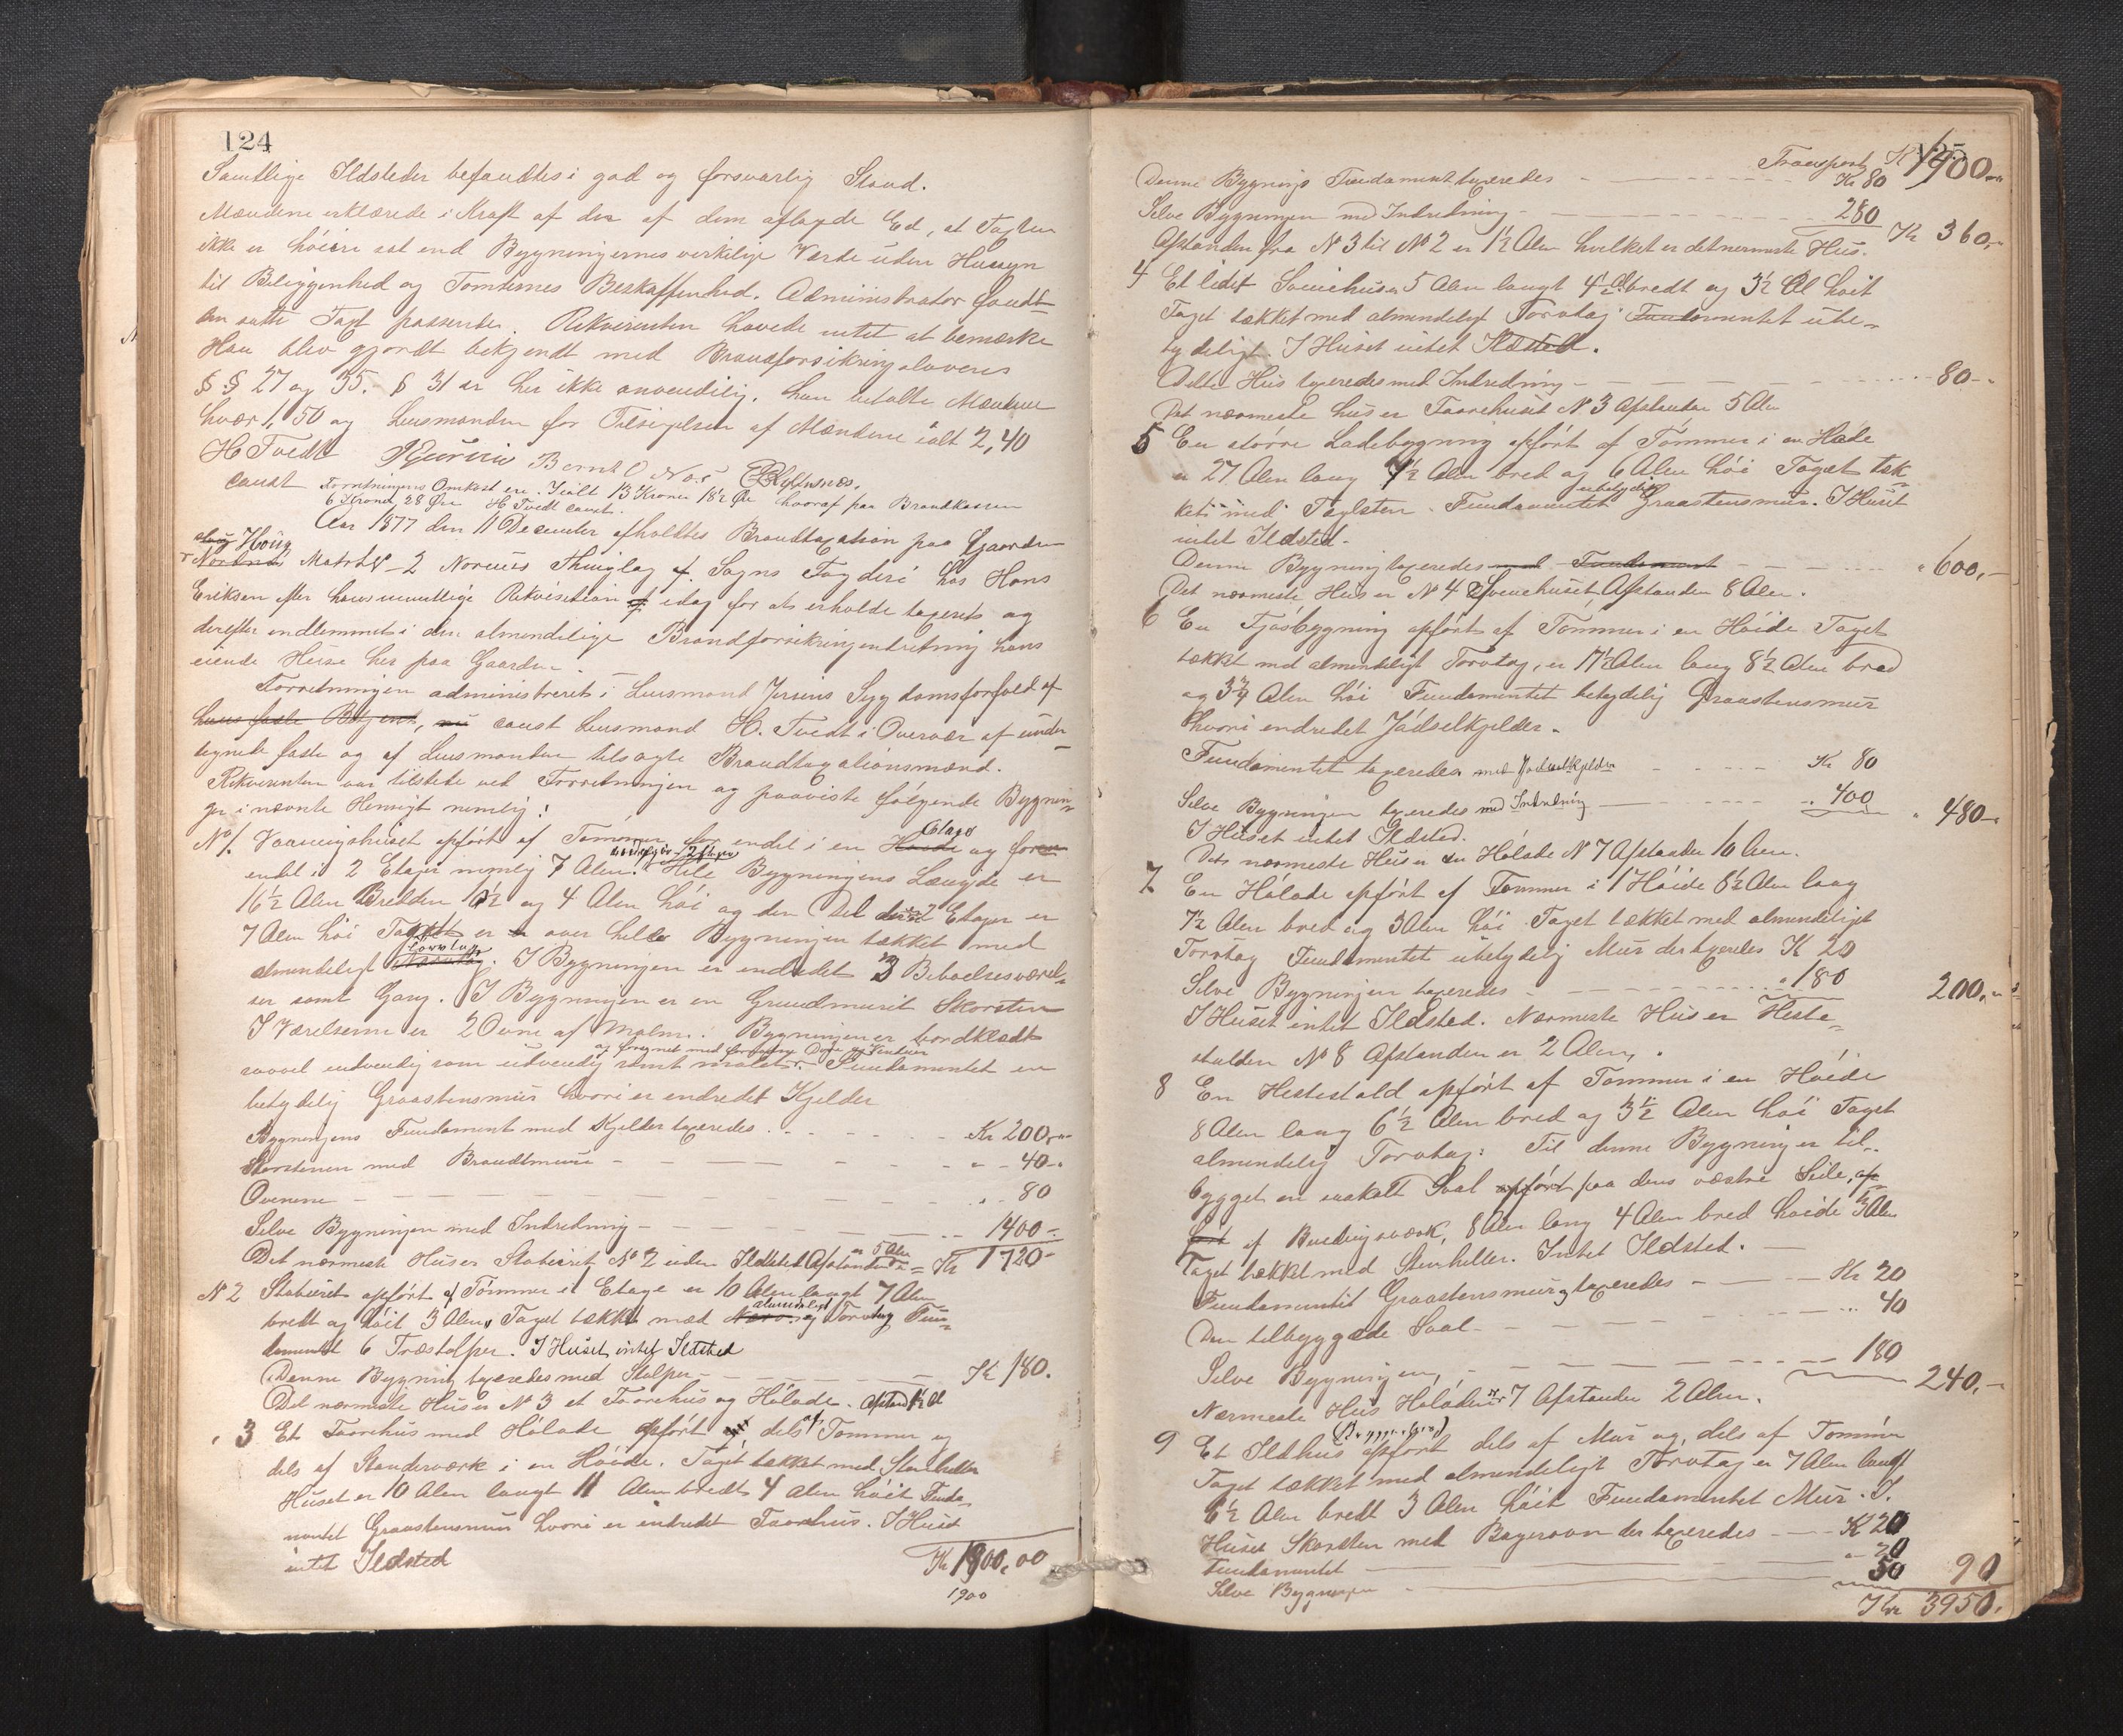 124
Samtlige Ildsteder befandtes i god og forsvarlig Stand.
Mændene erklærede i Kraft af den af dem aflagde Ed, at Taxten
ikke er høiere sat end Bygningernes virkelige Værdi uden Hensyn
til Beliggenhed og Tomternes Beskaffenhed. Administrator fandt
den satte Taxt passende. Rekvirenten havde intet at bemærke
Han blev gjordt bekjendt med Brandforsikringslovens
§ § 27 og 35. § 31 er her ikke anvendelig. Han betalte Mændene
hver 1,50 og Lensmanden for Tilsigelsen af Mændene ialt 2,40
H Tvedt Bernt O
const
Forretningens Omkost ere. Ialt 13 Kroner 18½ Øre hvoraf paa Brandkassen
6 Kroner 28 Øre H Tvedt const.
Aar 1877 den 11 December afholdtes Brandtaxation paa Gaarden
Houg
Matr No 2 Thinglag Sogns Fogderi hos Hans
Eriksen efter hans mundtlige Rekvisition idag for at erholde taxerets og
derefter indlemmet i den almindelige Brandforsikringsindretning hans
eiende Huse her paa Gaarden.
Forretningen administreret i Lensmand Sygdomsforfald af
hans faste Betjent, const Lensmand H. Tvedt i Overvær af under
tegnede faste og af Lensmanden tilsagte Brandtaxationsmænd.
Rekvirenten var tilstede ved Forretningen og paaviste følgende Bygnin
ger i nævnte Hensigt nemlig:
No 1. Vaaningshuset opført af Tømmer endel i en Høide Etage og
endel i 2 Etager nemlig 7 Alen. Hele Bygningens Længde er
16½ Alen Bredden og 4 Alen høi og den Del 2 Etager er
7 Alen høi Taget er over hele Bygningen tækket med
almindeligt Torvtag. I Bygningen er indredet 3 Beboelsesværel
ser samt Gang. I Bygningen er en Grundmuret Skorsten
I Værelserne er 2 Ovne af Malm. Bygningen er bordklædt
og forsynet med Døre og Vinduer
saavel indvendig som udvendig samt malet. Fundamentet en
betydelig Graastensmur hvori er indredet Kjelder
Bygningens Fundament med Kjelder taxeredes - - - Kr 200,
Skorstenen med Brandtmure - - - 40
Ovnene - - - 80
Selve Bygningen med Indredning - - - 1400
Det nærmeste Hus er Staburet No 2 uden Ildsted Afstanden er 5 Alen = Kr 1720
No 2 Staburet opført af Tømmer i 1 Etage er 10 Alen langt 7 Alen
bredt og høit 3 Alen, Taget tækket med almindeligt Torvtag Fun
damentet 6 Træstolper. I Huset intet Ildsted
Denne Bygning taxeredes med Stolper - - - Kr 180.
Det nærmeste Hus er No 3 et Taarehus og Hølade. Afstand 1½ Al
3 Et Taarehus med Hølade opført dels af Tømmer og
dels af Standerværk i en Høide. Taget tækket med Stenheller
Huset er 10 Alen langt 11 Alen bredt 4 Alen høit Funda
mentet Graastensmur hvori er indredet Taarehus. I Huset
intet Ildsted
Kr 1900,00
1900
Transport Kr 1900
Denne Bygnings Fundament taxeredes - - - Kr 80
Selve Bygningen med Indredning - - - 280
Kr 360,
Afstanden fra No 3 til No 2 er 1½ Alen hvilket er det nærmeste Hus.
4 Et lidet Svinehus 5 Alen langt 4½ Al bredt og 3½ Al høit
Taget tækket med almindeligt Torvtag Fundamentet ube
tydeligt. I Huset intet Ildsted.
Dette Hus taxeredes med Indredning - - - 80
Det nærmeste hus er Taarehuset No 3 Afstanden 5 Alen
5 En større Ladebygning opført af Tømmer i en Høide
er 27 Alen lang Alen bred og 6 Alen høi Taget tæk
ket med Taglsten. Fundamentet ubetydelig Graastensmur. I Huset
intet Ildsted.
Denne Bygning taxeredes med Fundament - - - 600,
Det nærmeste Hus er No 4 Svinehuset Afstanden 8 Alen.
6 En Fjøsbygning opført af Tømmer i en Høide Taget
tækket med almindeligt Torvtag, er 17½ Alen lang 8½ Alen bred
og 3¾ Alen høi Fundamentet betydelig Graastensmur
hvori indredet Jødselkjelder.
Fundamentet taxeredes med Jødselkjelder - - - Kr 80
Selve Bygningen taxeredes med Indredning - - - 400
480
I Huset intet Ildsted.
Det nærmeste Hus er en Hølade No 7 Afstanden 10 Alen.
7 En Hølade opført af Tømmer i 1 Høide 8½ Alen lang
7½ Alen bred og 3 Alen høi Taget tækket med almindeligt
Torvtag Fundamentet ubetydelig Mur der taxeredes K 20
Selve Bygningen taxeredes - - - 180
200,
I Huset intet Ildsted. Nærmeste Hus er Heste
stalden No 8 Afstanden er 2 Alen.
8 En Hestestald opført af Tømmer i en Høide
8 Alen lang 6½ Alen bred og 3½ Alen høi Taget
almindelig Torvtag. Til denne Bygning er til
bygget en saakalt Sval opført paa dens vestre Side, op
ført af Bindingsværk, 8 Alen lang 4 Alen bred høide 3½ Alen
Taget tækket med Stenheller. Intet Ildsted.
Fundamentet Graastensmur taxeredes - - - Kr 20
Den tilbyggede Sval - - - 40
Selve Bygningen, - - - 180
240,
Nærmeste Hus Høladen No 7 Afstanden 2 Alen.
9 Et Ildhus opført dels af Mur og dels af Tømmer
Taget tækket med almindeligt Torvtag er 7 Alen langt
6½ Alen bredt 3 Alen høit Fundamentet Mur. I
Huset Skorsten med Bagerovn der taxeredes - - - K 20
Fundamentet - - - 20
Selve Bygningen - - - 50 90
Kr 3950.